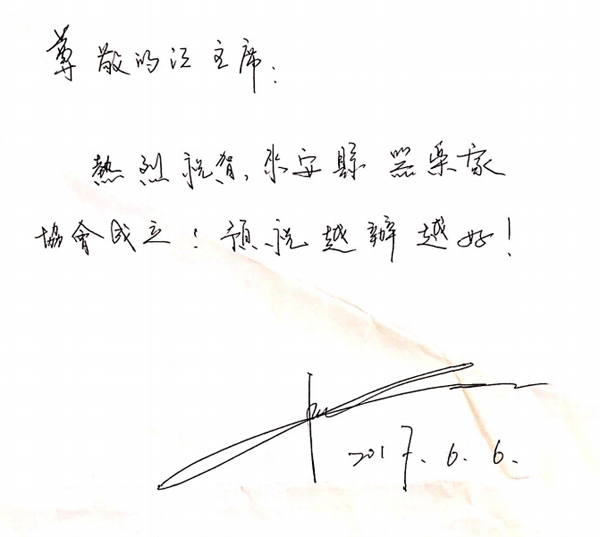 尊敬的江主席：
熱烈祝賀，來安縣器樂家
協會成立！預祝越辦越好！
2017.6.6.